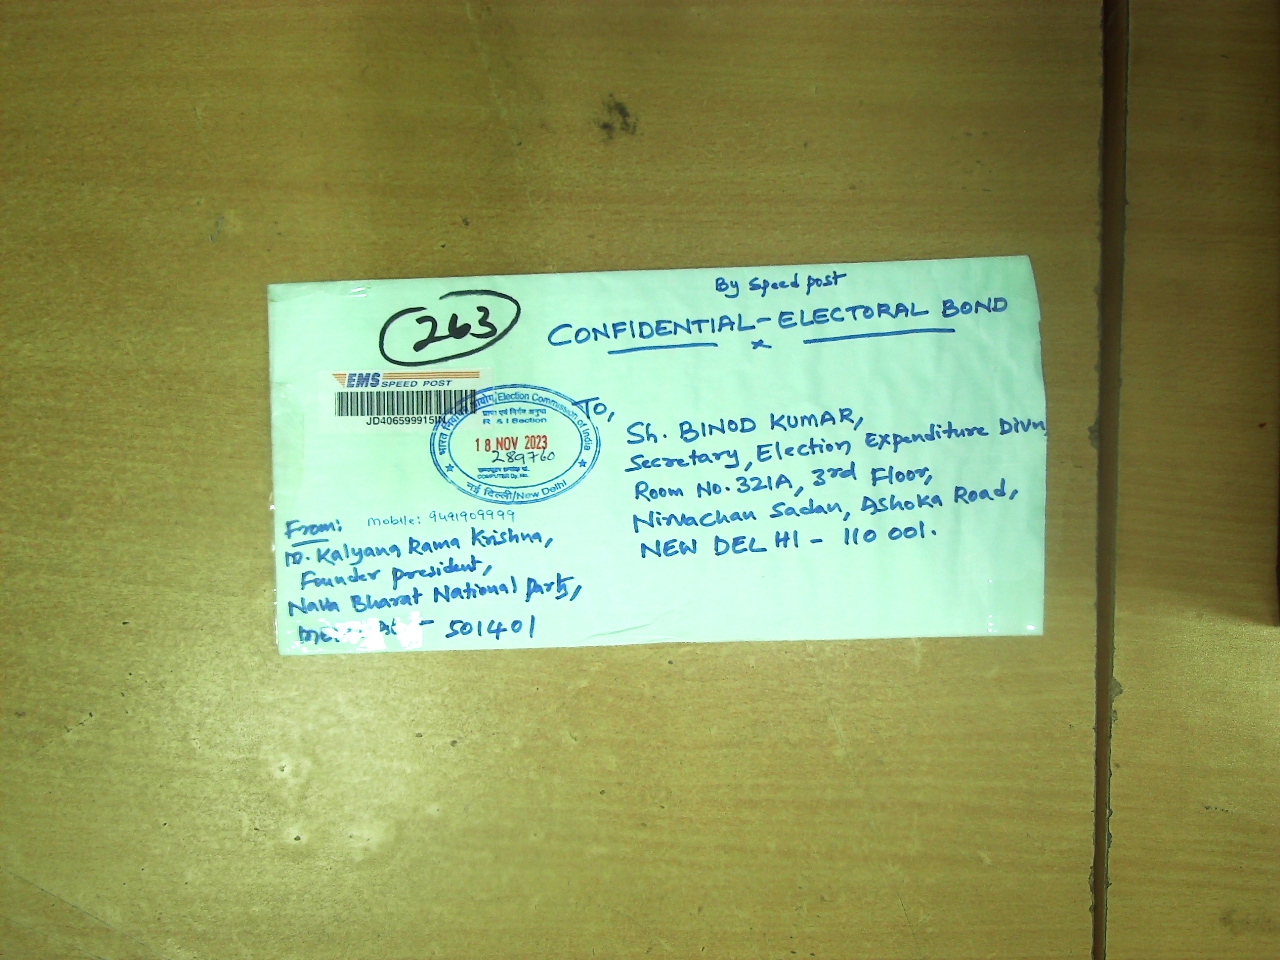 By Speed post
CONFIDENTIAL - ELECTORAL BOND
x
263
EMS SPEED POST
JD406599915IN
भारत निर्वाचन आयोग/Election Commission of India
R & I Section
18 NOV 2023
289760
COMPUTER Dy. No.
नई दिल्ली/New Delhi
To,
Sh. BINOD KUMAR,
Secretary, Election Expenditure Divn,
Room No. 321A, 3rd Floor,
Nirvachan Sadan, Ashoka Road,
NEW DELHI - 110 001.
From: Mobile: 9491909999
Kalyana Rama Krishna,
Founder president,
Nava Bharat National Party,
- 501401